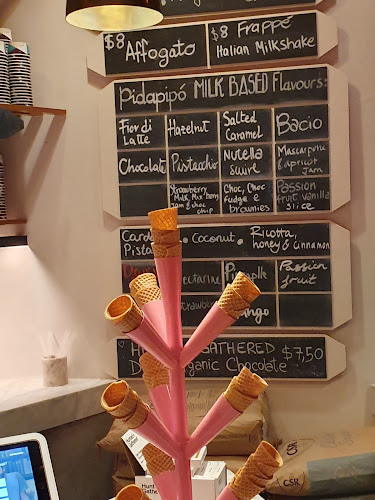 $8
Affogato
$8 Frappé
Italian Milkshake
Pidapipó MILK BASED Flavours:
Fior di Latte
Hazelnut
Salted Caramel
Bacio
Chocolate
Pistacchio
Nutella swirl
Mascarpone & apricot jam
Strawberry Milk, Mix berry Jam & choc chip
Choc, Choc fudge & brownies
Passion fruit vanilla slice
Coconut
Ricotta, honey & cinnamon
Passion fruit
GATHERED $7,50
Chocolate
CSR